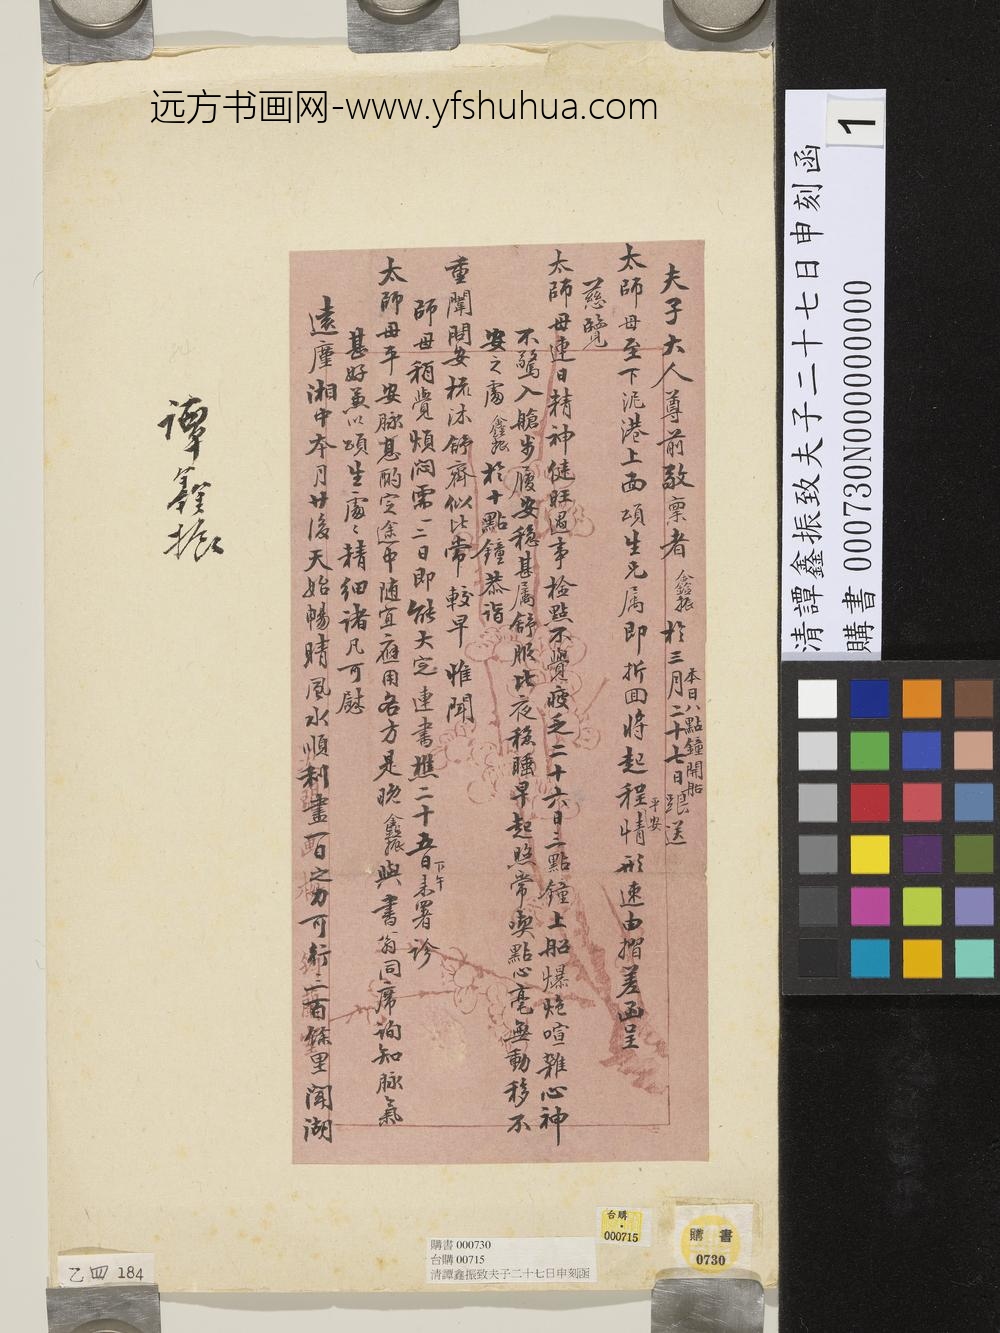 远方书画网-www.yfshuhua.com
夫子大人尊前敬稟者鑫振於三月二十七日跟送
本日八點鐘開船
太師母至下泥港上面頌生兄属即折回將起程平安情形速由摺差函呈
慈覽
太師母連日精神健旺過事檢點不覺疲乏二十六日三點鐘上船爆炮喧雜心神
不驚入艙步履安穩甚属舒服此夜穩睡早起照常喫點心毫無動移不
安之處鑫振於十點鐘恭詣
重闈問安梳沐舒齊似比常較早惟聞
師母稍覺煩悶需一二日即能大定連書樵二十五日下午未署診
太師母平安脉息酌定途中随宜應用各方是晚鑫振與書翁同席詢知脉氣
甚好兼以頌生處處精細諸凡可慰
遠塵湘中本月廿後天始暢晴風水順利盡一日之力可行二百餘里聞湖
譚鑫振
清譚鑫振致夫子二十七日申刻函
購書 000730N000000000
1
台購
000715
購書
0730
購書 000730
台購 00715
清譚鑫振致夫子二十七日申刻函
乙四 184